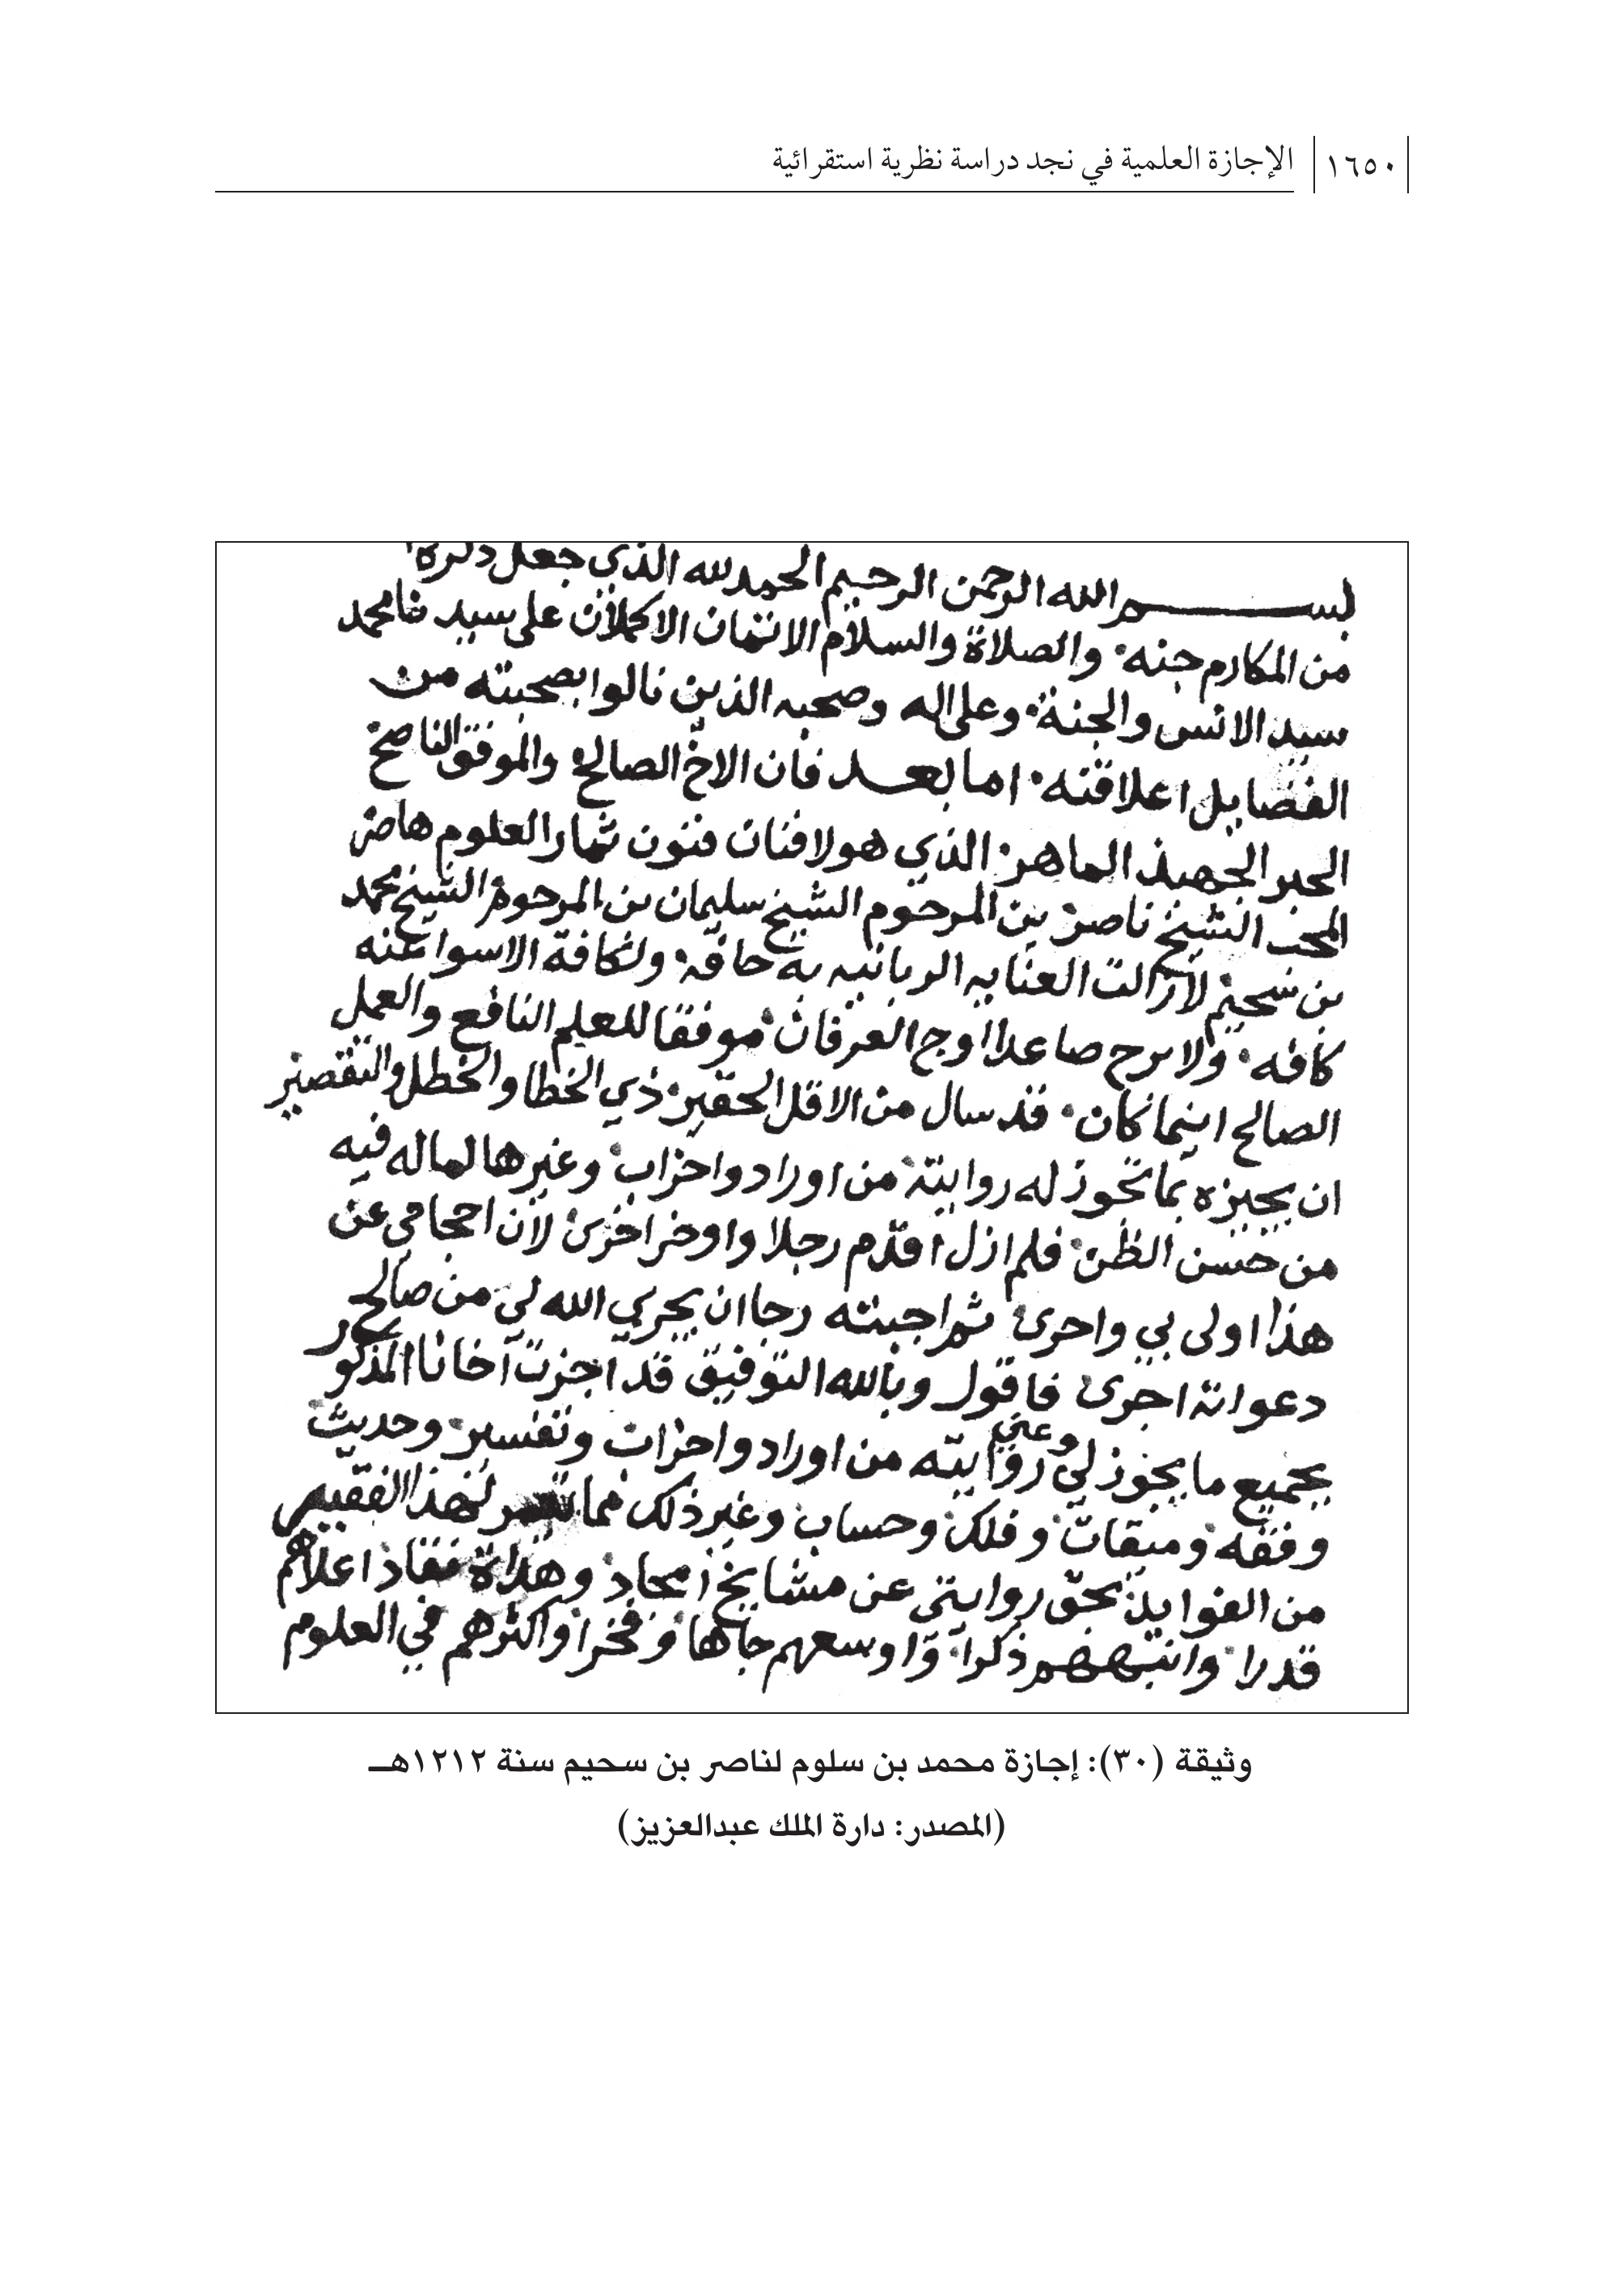 ١٦٥٠ الإجازة العلمية في نجد دراسة نظرية استقرائية
بسم الله الرحمن الرحيم الحمد لله الذي جعل ذكره
من المكارم جنه والصلاة والسلام الاتمان الاكملان على سيدنا محمد
سيد الانس والجنة وعلى اله وصحبه الذين نالوا بصحبته من
الفضايل اعلا قنه اما بعد فان الاخ الصالح والموفق الناصح
الحبر الجهبذ الماهر الذي هو لافنان فنون ثمار العلوم هاصر
المحب الشيخ ناصر بن المرحوم الشيخ سليمان بن المرحوم الشيخ محمد
بن سحيم لازالت العنايه الربانيه به حافه ولكافة الاسوا عنه
كافه ولا برح صاعدا اوج العرفان موفقا للعلم النافع والعمل
الصالح اينما كان قد سال من الاقل الحقير ذي الخطا والخطل والتقصير
ان يجيزه بما تجوز له روايته من اوراد واحزاب وغيرها لما له فيه
من حسن الظن فلم ازل اقدم رجلا واوخر اخرى لان احجامي عن
هذا اولى بي واحرى ثم اجبته رجا ان يجري الله لي من صالح
دعواته اجرى فاقول وبالله التوفيق قد اجزت اخانا المذكور
بجميع ما يجوز لي وعني روايته من اوراد واحزاب وتفسير وحديث
وفقه وميقات وفلك وحساب وغير ذلك مما لهذا الفقير
من الفوايد بحق روايتي عن مشايخ امجاد وهداة نقاد اعلاهم
قدرا وانبههم ذكرا واوسعهم جاها وفخرا واكثرهم في العلوم
وثيقة (٣٠): إجازة محمد بن سلوم لناصر بن سحيم سنة ١٢١٢هـ
(المصدر: دارة الملك عبدالعزيز)